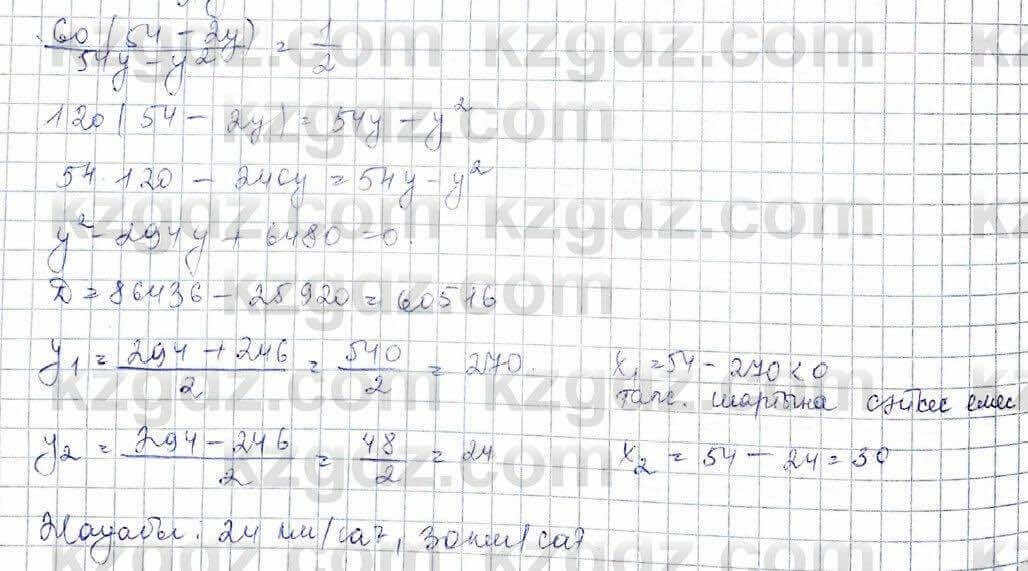 60(54 - 2y) / 54y - y² = 1/2
120(54 - 2y) = 54y - y²
54·120 - 240y = 54y - y²
y² - 294y + 6480 = 0.
D = 86436 - 25920 = 60516
y₁ = (294 + 246)/2 = 540/2 = 270. x₁ = 54 - 270 < 0
тапс. шартына сәйкес емес
y₂ = (294 - 246)/2 = 48/2 = 24 x₂ = 54 - 24 = 30
Жауабы: 24 км/сағ, 30 км/сағ
kzgdz.com